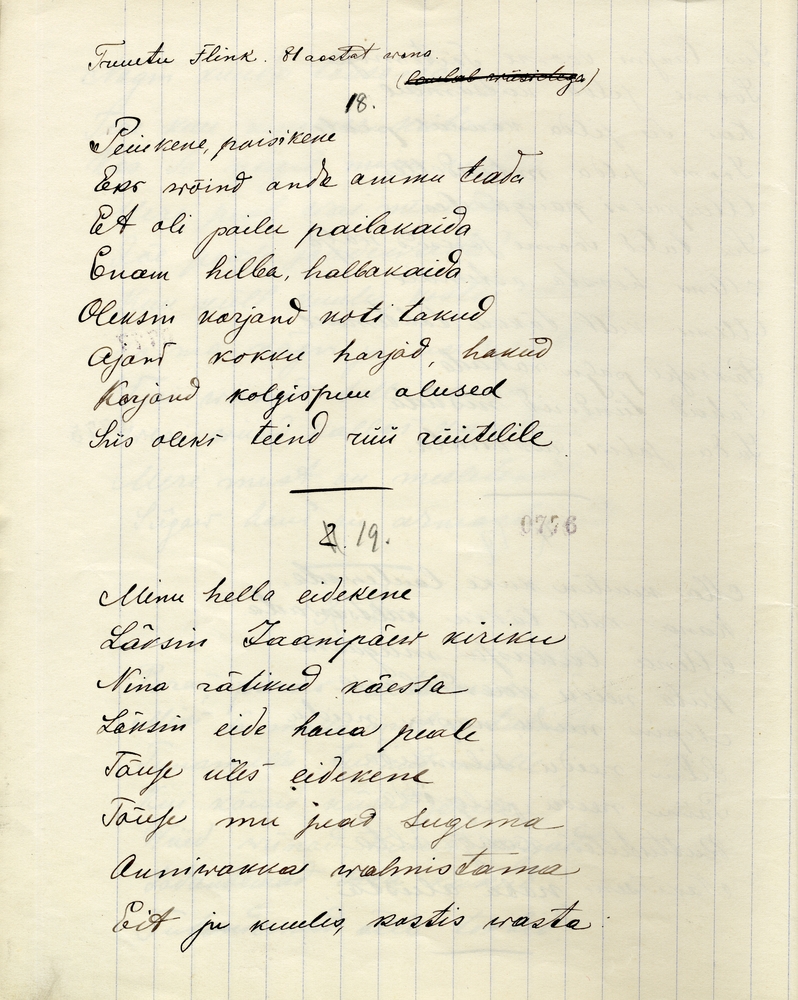 Truutu Flink. 81 aastat wana.
(laulab wiisidega)
18.
Peiukene, poisikene
Eks wõind anda ammu teada
Et oli paelu pailakaida
Enam hilba, halbakaida
Oleksin korjand koti takud
Ajand kokku harjad, hakud
Korjand kolgispuu alused
Siis oleks teind rüü rüütelile
0776
2. 19.
Minu hella eidekene
Läksin Jaanipäew kiriku
Nina rätikud käessa
Läksin eide haua peale
Tõuse ülës eidekene
Tõuse mu pead sugema
Anniwakka walmistama
Eit ju kuulis, kostis wasta: